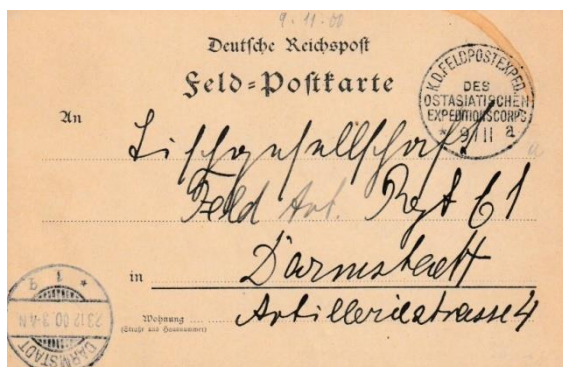 9.11.00
Deutsche Reichspost
Feld-Postkarte
K.D.FELDPOSTEXPED.
DES
OSTASIATISCHEN
EXPEDITIONSCORPS
* 9/11 a
An
Tischgesellschaft
Feld Art. Regt 61
in Darmstadt
Wohnung
(Straße und Hausnummer)
Artilleriestrasse 4
* 1 d
23.12.00.3-4N
DARMSTADT